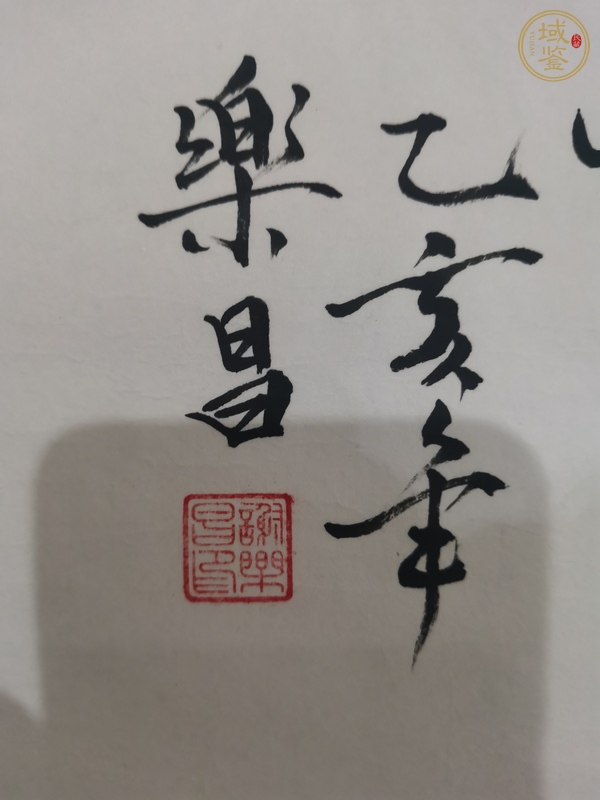 乙亥年
樂昌
謝樂昌印
域鉴